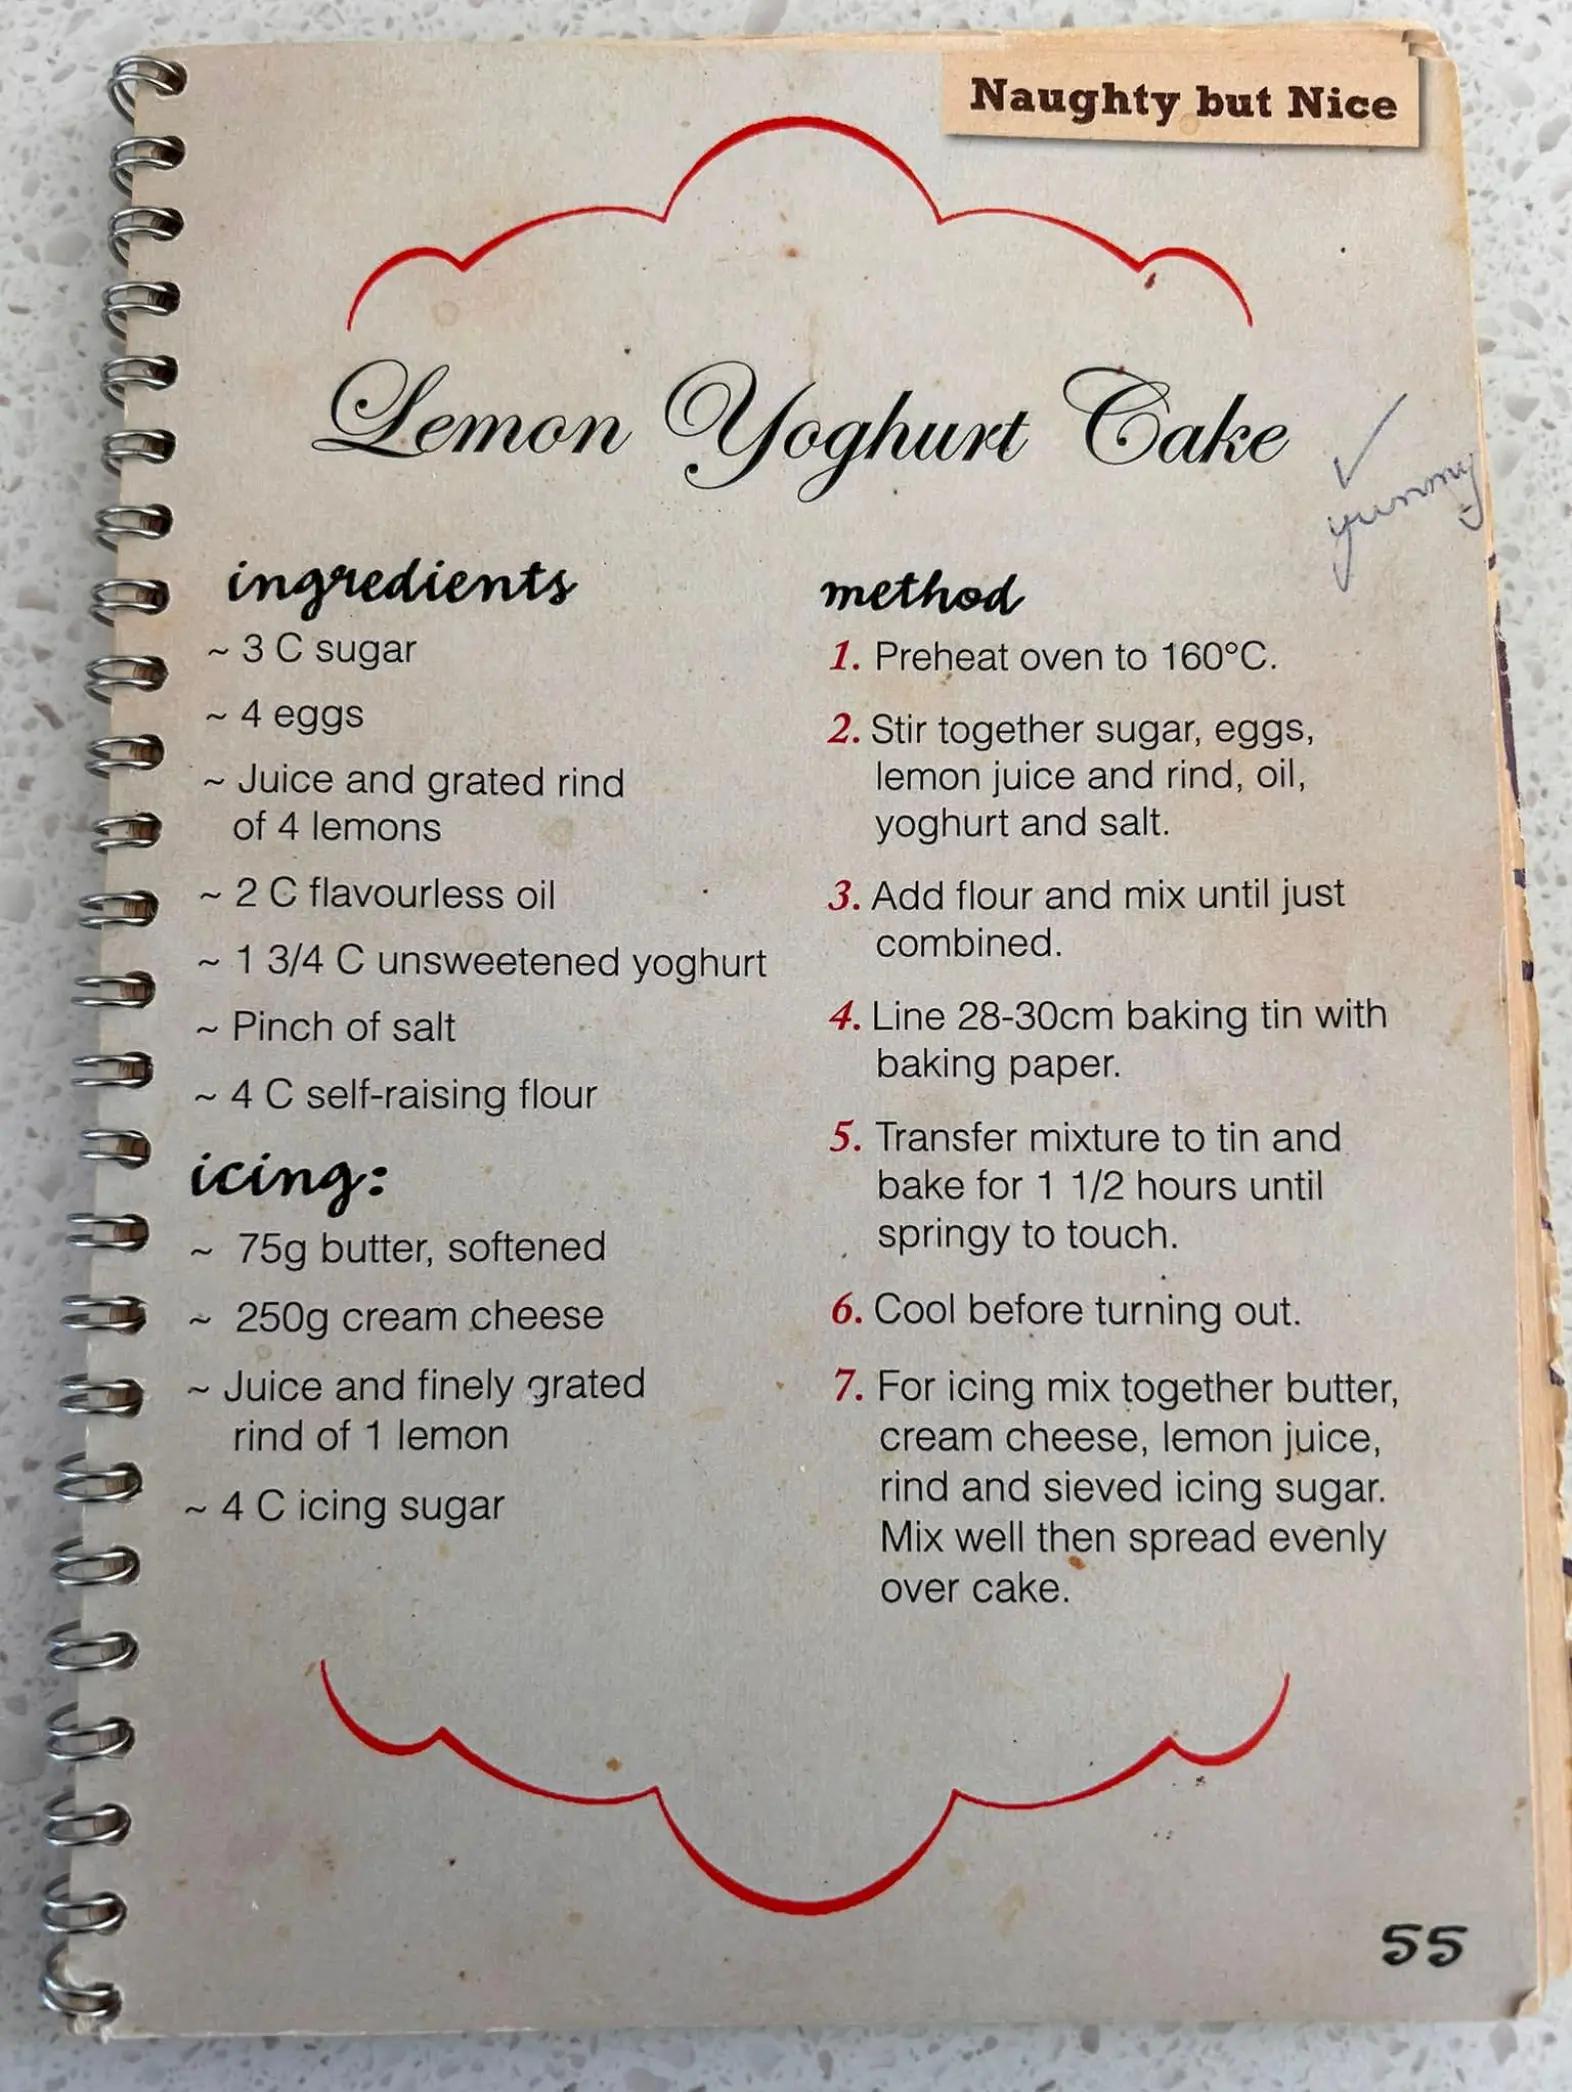 Naughty but Nice
Lemon Yoghurt Cake
✓
yummy
ingredients
~ 3 C sugar
~ 4 eggs
~ Juice and grated rind
of 4 lemons
~ 2 C flavourless oil
~ 1 3/4 C unsweetened yoghurt
~ Pinch of salt
~ 4 C self-raising flour
icing:
~ 75g butter, softened
~ 250g cream cheese
~ Juice and finely grated
rind of 1 lemon
~ 4 C icing sugar
method
1. Preheat oven to 160°C.
2. Stir together sugar, eggs,
lemon juice and rind, oil,
yoghurt and salt.
3. Add flour and mix until just
combined.
4. Line 28-30cm baking tin with
baking paper.
5. Transfer mixture to tin and
bake for 1 1/2 hours until
springy to touch.
6. Cool before turning out.
7. For icing mix together butter,
cream cheese, lemon juice,
rind and sieved icing sugar.
Mix well then spread evenly
over cake.
55